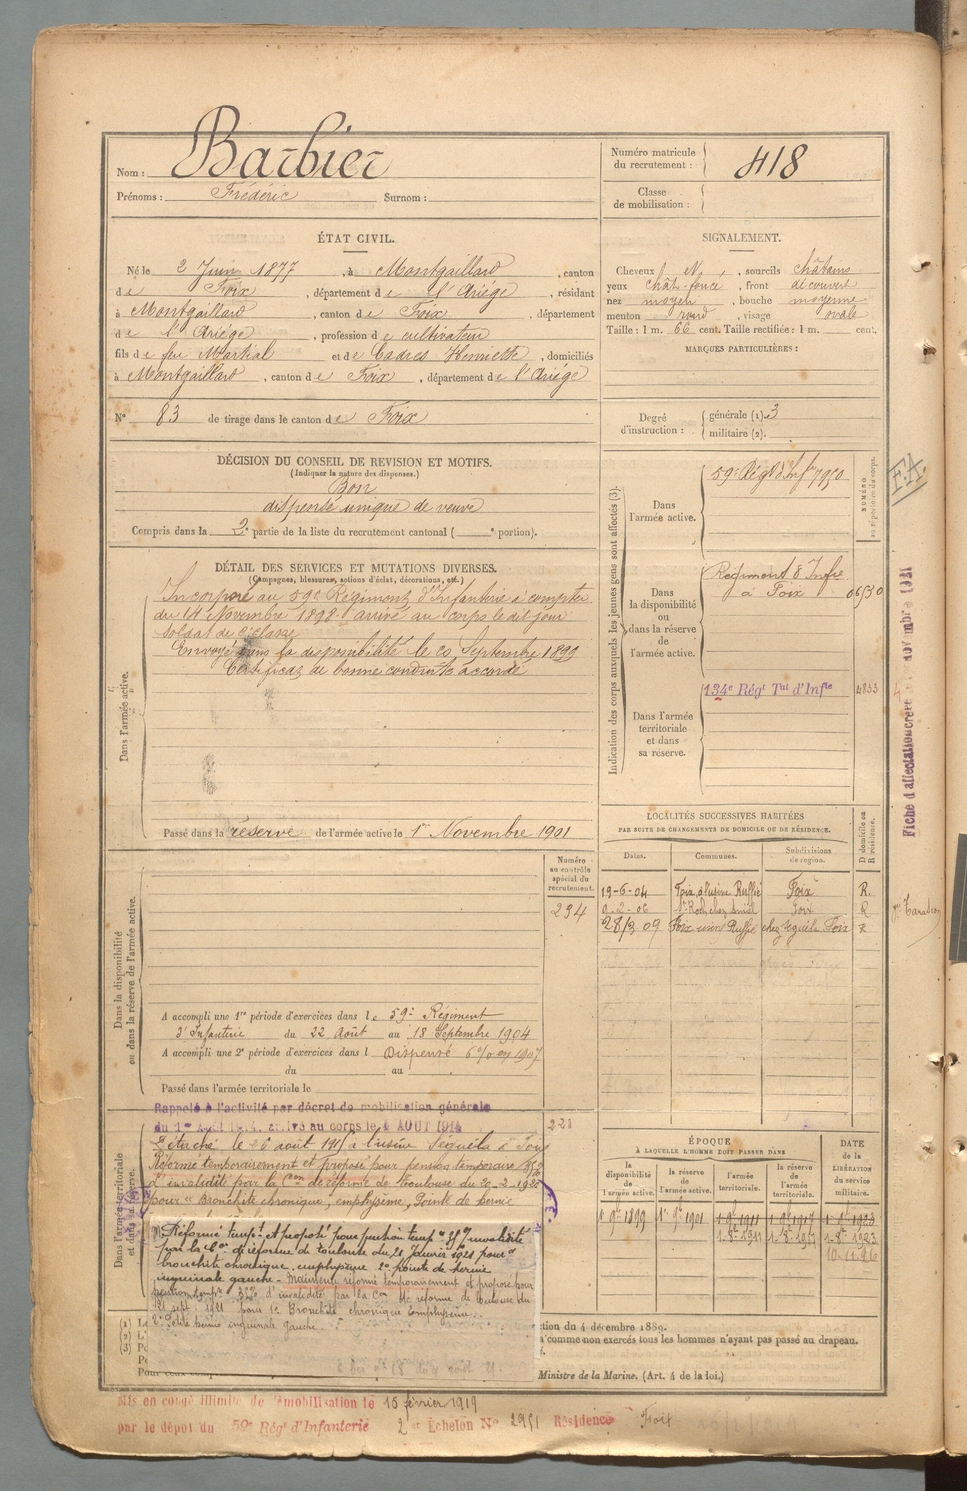 Nom : Barbier
Prénoms : Frédéric Surnom :
Numéro matricule
du recrutement : 418
Classe
de mobilisation :
ÉTAT CIVIL.
Né le 2 Juin 1877, à Montgaillard, canton
de Foix, département de l'Ariége, résidant
à Montgaillard, canton de Foix, département
de l'Ariége, profession de cultivateur
fils de feu Martial et de Cadres Henriette, domiciliés
à Montgaillard, canton de Foix, département de l'Ariége
N° 83 de tirage dans le canton de Foix
SIGNALEMENT.
Cheveux N, sourcils châtains
yeux chât-foncé, front découvert
nez moyen, bouche moyenne
menton rond, visage ovale
Taille : 1 m. 66 cent. Taille rectifiée : 1 m. cent.
MARQUES PARTICULIÈRES :
Degré
d'instruction :
générale (1). 3
militaire (2).
DÉCISION DU CONSEIL DE REVISION ET MOTIFS.
(Indiquer la nature des dispenses.)
Bon
dispensé unique de veuve
Compris dans la 2e partie de la liste du recrutement cantonal ( e portion).
DÉTAIL DES SERVICES ET MUTATIONS DIVERSES.
(Campagnes, blessures, actions d'éclat, décorations, etc.)
Dans l'armée active.
Incorporé au 59e Régiment d'Infanterie à compter
du 14 Novembre 1898 arrivé au corps le dit jour
soldat de 2e classe
Envoyé dans la disponibilité le 20 Septembre 1899
Certificat de bonne conduite accordé
Passé dans la réserve de l'armée active le 1er Novembre 1901
Indication des corps auxquels les jeunes gens sont affectés (3).
NUMÉRO
au répertoire du corps.
Dans
l'armée active.
59e Régt d'Infie 7950
Dans
la disponibilité
ou
dans la réserve
de
l'armée active.
Régiment d'Infie
à Foix
Dans l'armée
territoriale
et dans
sa réserve.
134e Régt Tal d'Infie
4833
F.A.
novembre 1931
LOCALITÉS SUCCESSIVES HABITÉES
PAR SUITE DE CHANGEMENTS DE DOMICILE OU DE RÉSIDENCE.
Dates. Communes. Subdivisions de région. D domicile ou R résidence.
19-6-04 Foix, à l'usine Ruffié Foix R.
Foix R
28/3 09 Foix usine Ruffié chez Séguéla Foix R
Dans la disponibilité
ou dans la réserve de l'armée active.
Numéro
au contrôle
spécial du
recrutement.
234
A accompli une 1re période d'exercices dans le 59e Régiment
d'Infanterie du 22 Août au 18 Septembre 1904
A accompli une 2e période d'exercices dans l Dispensé 1907
du au
Passé dans l'armée territoriale le
Dans l'armée territoriale
et dans sa réserve.
Rappelé à l'activité par décret de mobilisation générale
du 1er AOUT 1914, arrivé au corps le 4 AOUT 1914
Détaché le 26 août 1915 à l'usine Séguéla à Foix
Réformé temporairement et proposé pour pension temporaire
d'invalidité par la Con de réforme de Toulouse du 20-2-1920
pour « Bronchite chronique, emphysème, Pointe de hernie
Réformé tempt et proposé pour pension tempre invalidité
par la Con de réforme de Toulouse du 21 Janvier 1921 pour 1°
bronchite chronique, emphysème 2° pointe de hernie
inguinale gauche - Maintenu réformé temporairement et proposé pour
pension tempre d'invalidité par la Con de réforme de Toulouse du
21 sept. 1921 pour 1° Bronchite chronique emphysème.
2° Petite hernie inguinale gauche.
ÉPOQUE
À LAQUELLE L'HOMME DOIT PASSER DANS
la disponibilité de l'armée active. la réserve de l'armée active. l'armée territoriale. la réserve de l'armée territoriale.
DATE
de la
LIBÉRATION
du service
militaire.
1r 9bre 1899 1r 9bre 1901 1r 9bre 1911 1r 9bre 1917 1r 9bre 1923
10.11.26
(1)
(2)
(3)
tion du 4 décembre 1889.
comme non exercés tous les hommes n'ayant pas passé au drapeau.
Ministre de la Marine. (Art. 4 de la loi.)
Mis en congé illimité de démobilisation le 15 février 1919
par le dépôt du 59e Régt d'Infanterie 2e Echelon N° 2951 Résidence Foix